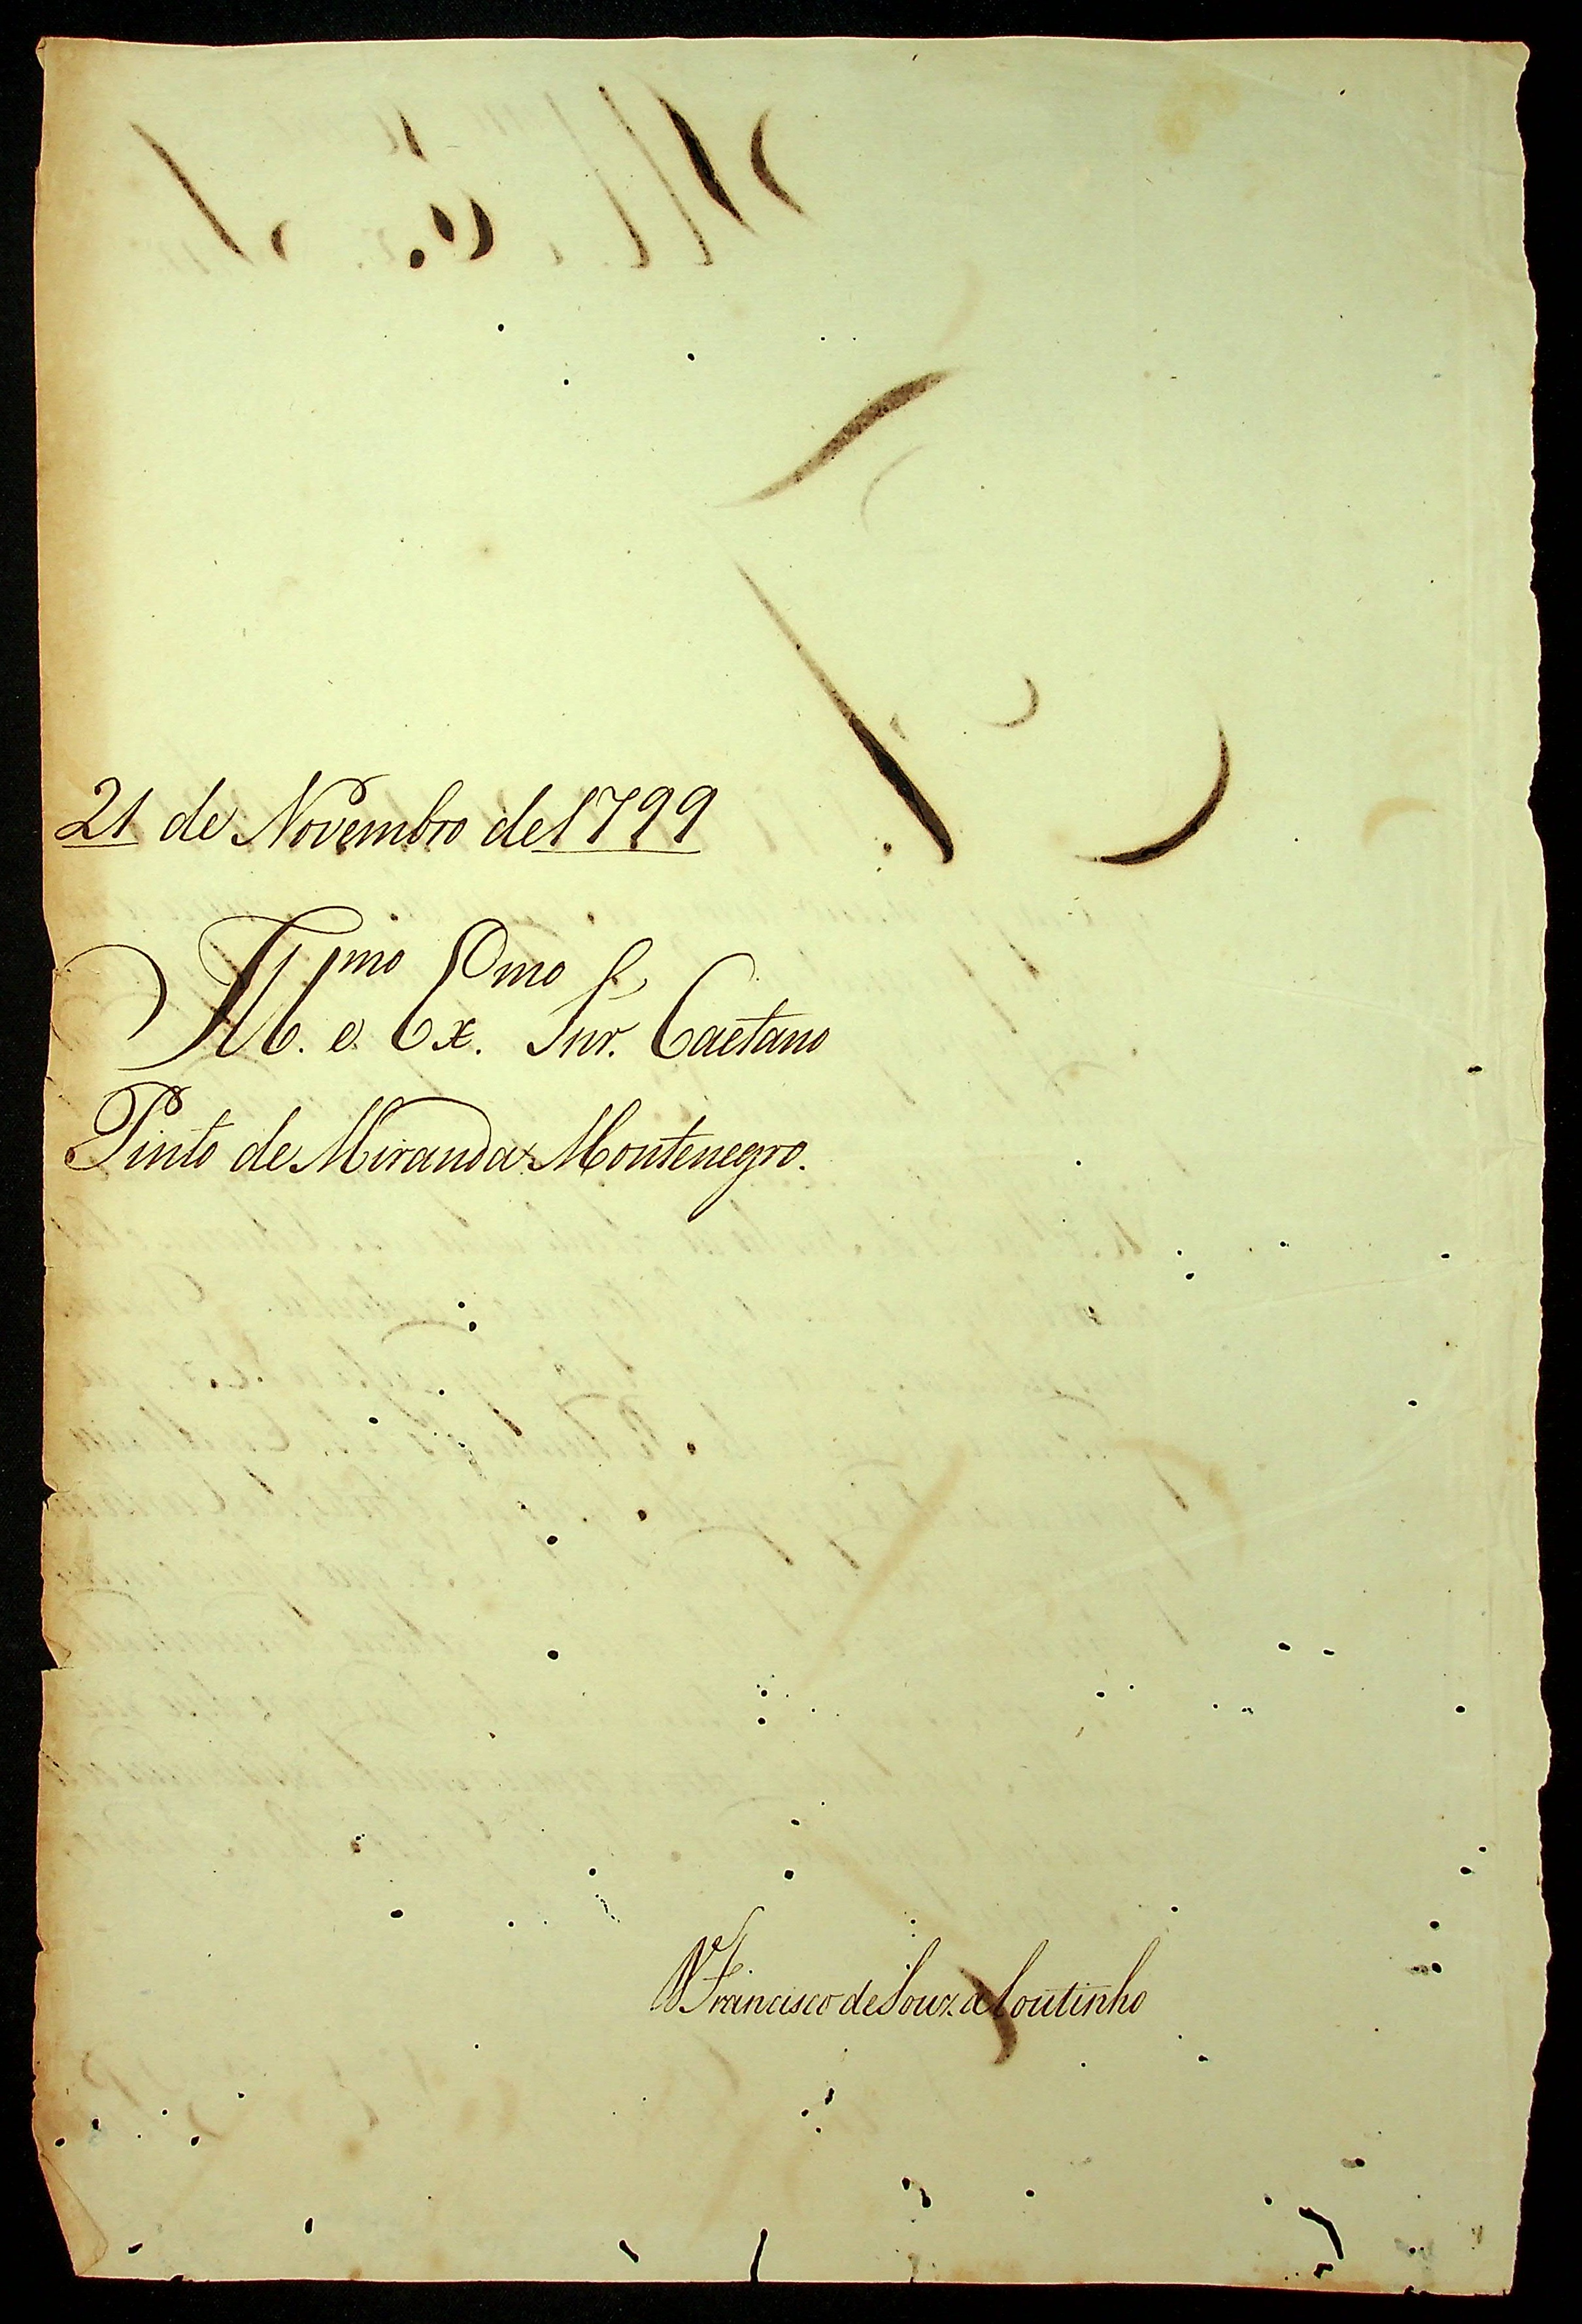 21 de Novembro de 1799
Ill.mo e Ex.mo Snr. Caetano
Pinto de Miranda Montenegro.
D. Francisco de Souza Coutinho